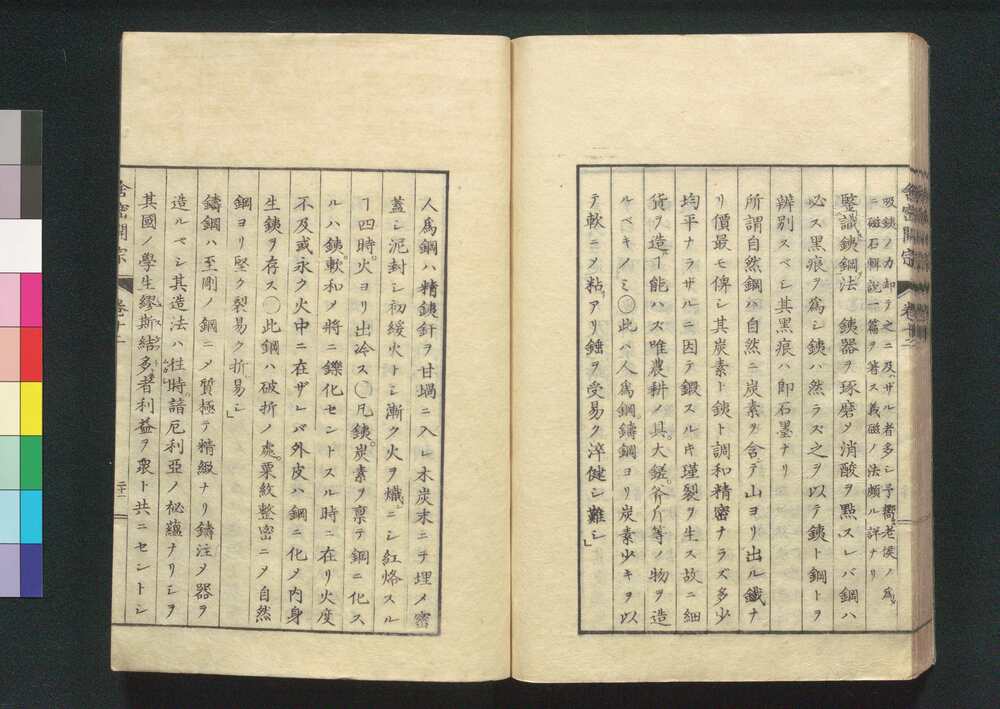 吸銕ノ力却テ之ニ及ザル者多シ予嚮老侯ノ爲
ニ磁石輯説一篇ヲ著ス義磁ノ法頗ル詳ナリ
鑒識銕鋼法 銕器ヲ琢磨メ消酸ヲ點スレバ鋼ハ
必ス黒痕ヲ爲シ銕ハ然ラス之ヲ以テ銕ト鋼トヲ
辨別スベシ其黒痕ハ即石墨ナリ
所謂自然鋼ハ自然ニ炭素ヲ含テ山ヨリ出ル鐵ナ
リ價最モ俾シ其炭素ト銕ト調和精密ナラズ多少
均平ナラザルニ因テ鍛スルキ瑾裂ヲ生ス故ニ細
貨ヲ造ルヿ能ハス唯農耕ノ具大鎈斧斤等ノ物ヲ造
ルベキノミ○此ハ人爲鋼鑄鋼ヨリ炭素少キヲ以
テ軟ニメ粘アリ錘ヲ受易ク淬健シ難シ」
舎密開宗
卷十二
人爲鋼ハ精銕釬ヲ甘堝ニ入レ木炭末ニテ埋メ密
蓋シ泥封シ初緩火トシ漸ク火ヲ熾ニシ紅烙スル
ヿ四時火ヨリ出冷ス○凡銕炭素ヲ禀テ鋼ニ化ス
ルハ銕軟和ノ將ニ鑠化セントスル時ニ在リ火度
不及或永ク火中ニ在ザレバ外皮ハ鋼ニ化メ内身
生銕ヲ存ス○此鋼ハ破折ノ處粟紋整密ニメ自然
鋼ヨリ堅ク裂易ク折易シ」
鑄鋼ハ至剛ノ鋼ニメ質極テ精緻ナリ鑄注メ器ヲ
造ルベシ其造法ハ徃時諳厄利亞ノ祕蘊ナリシヲ
其國ノ學生繆斯結多者利益ヲ衆ト共ニセントシ